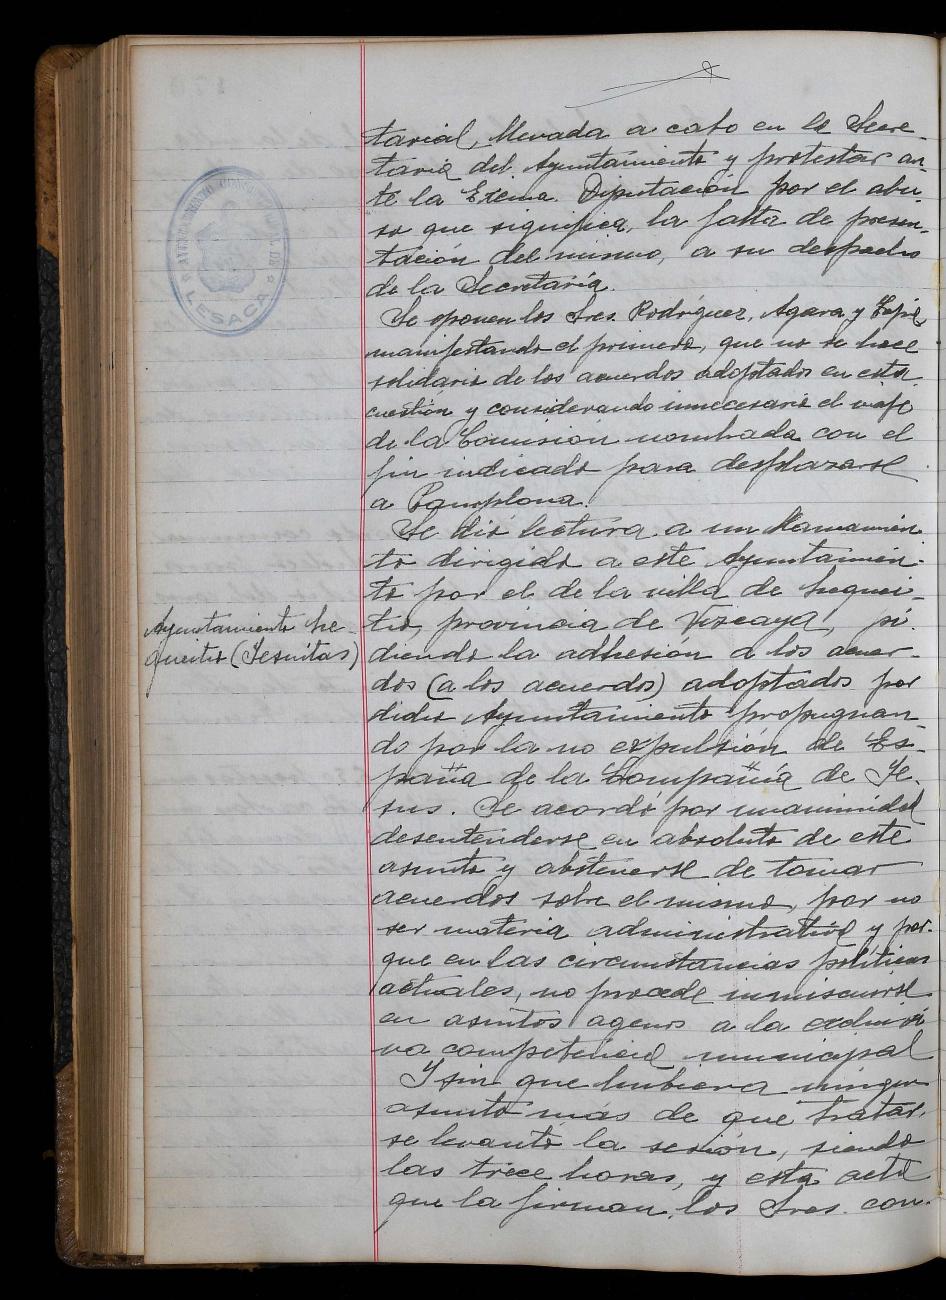 tarial, llevada a cabo en la Secre-
taria del Ayuntamiento y protestar an-
te la Excma. Diputación por el abu-
so que significa, la falta de presen-
tación del mismo, a su despacho
de la Secretaría.
Se oponen los Sres. Rodríguez, Agara y
manifestando el primero, que no se hace
solidario de los acuerdos adoptados en esta
cuestión y considerando innecesario el viaje
de la Comisión nombrada con el
fin indicado para desplazarse
a Pamplona.
Se dió lectura a un llamamien-
to dirigido a este Ayuntamien-
to por el de la villa de Lequei-
tio, provincia de Vizcaya, pi-
Ayuntamiento Le-
queitio (Jesuitas)
diendo la adhesión a los acuer-
dos (a los acuerdos) adoptados por
dicho Ayuntamiento propugnan-
do por la no expulsión de Es-
paña de la Compañía de Je-
sus. Se acordó por unanimidad
desentenderse en absoluto de este
asunto y abstenerse de tomar
acuerdos sobre el mismo, por no
ser materia administrativa y por-
que en las circunstancias políticas
actuales, no procede inmiscuirse
en asuntos agenos a la exclusi-
va competencia municipal
Y sin que hubiera ningun
asunto más de que tratar,
se levantó la sesión, siendo
las trece horas, y esta acta
que la firman, los Sres. con-
AYUNTAMIENTO CONSTITUCIONAL DE
LESACA